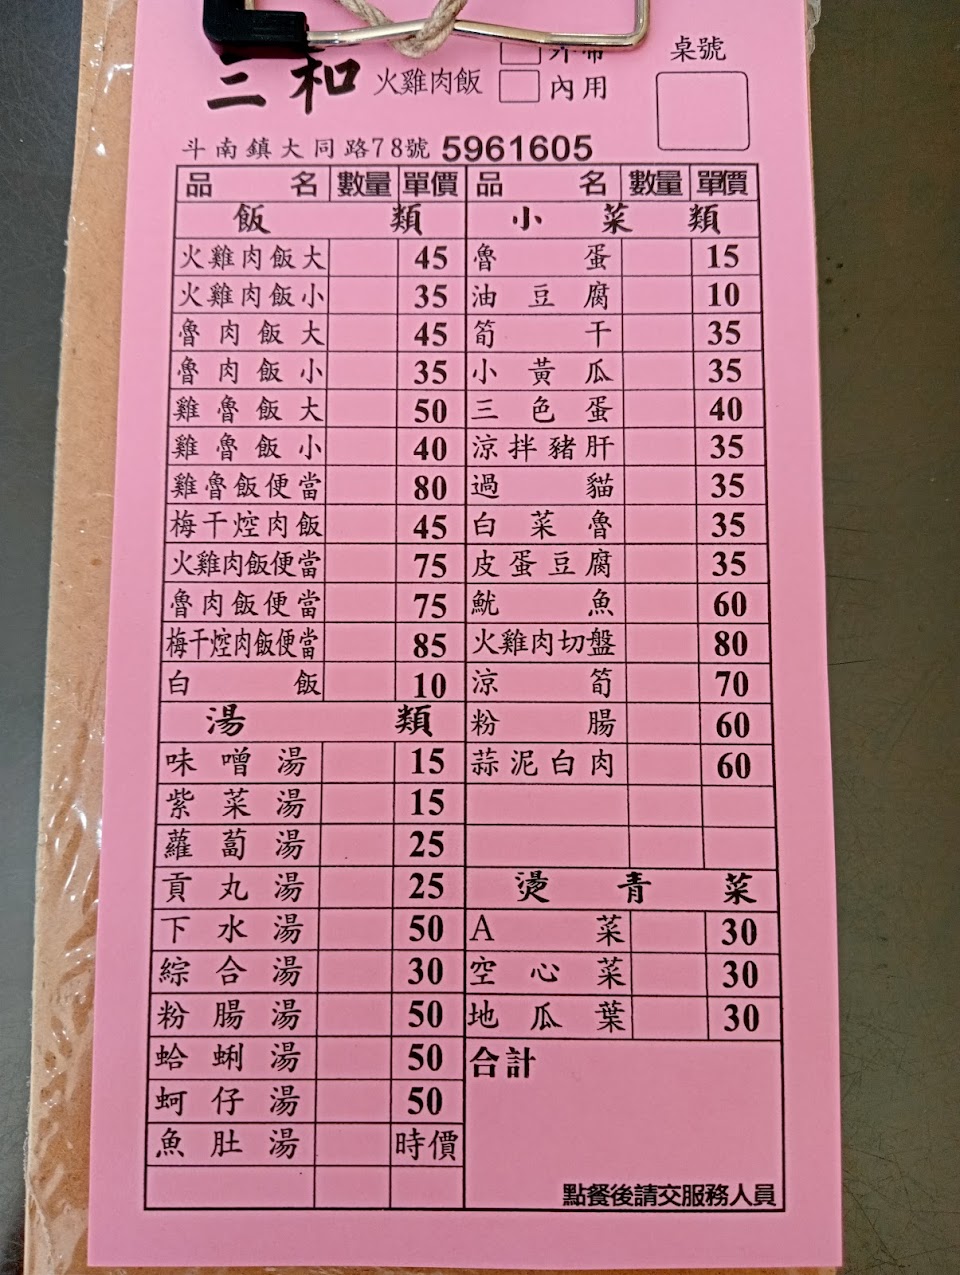 三和 火雞肉飯
外帶
內用
桌號
斗南鎮大同路78號 5961605
品名 數量 單價 品名 數量 單價
飯類 小菜類
火雞肉飯大 45 魯蛋 15
火雞肉飯小 35 油豆腐 10
魯肉飯大 45 筍干 35
魯肉飯小 35 小黃瓜 35
雞魯飯大 50 三色蛋 40
雞魯飯小 40 涼拌豬肝 35
雞魯飯便當 80 過貓 35
梅干焢肉飯 45 白菜魯 35
火雞肉飯便當 75 皮蛋豆腐 35
魯肉飯便當 75 魷魚 60
梅干焢肉飯便當 85 火雞肉切盤 80
白飯 10 涼筍 70
湯類 粉腸 60
味噌湯 15 蒜泥白肉 60
紫菜湯 15
蘿蔔湯 25
貢丸湯 25 燙青菜
下水湯 50 A菜 30
綜合湯 30 空心菜 30
粉腸湯 50 地瓜葉 30
蛤蜊湯 50 合計
蚵仔湯 50
魚肚湯 時價
點餐後請交服務人員